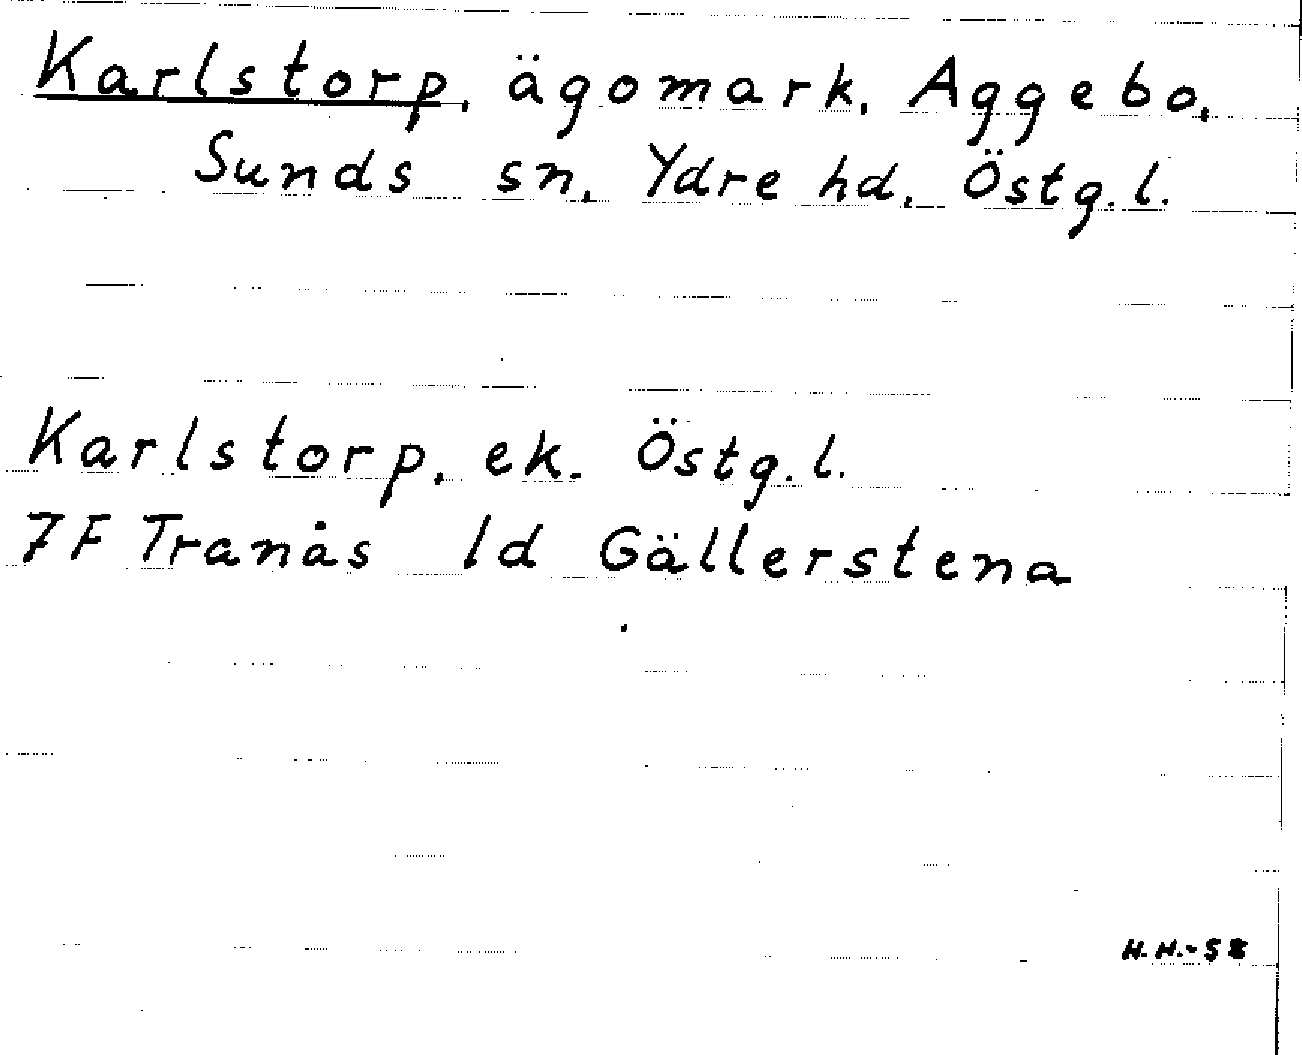 Karlstorp, ägomark, Aggebo,
Sunds sn, Ydre hd, Östg.l.
Karlstorp, ek. Östg.l.
7F Tranås 1d Gällerstena
H.H.-58